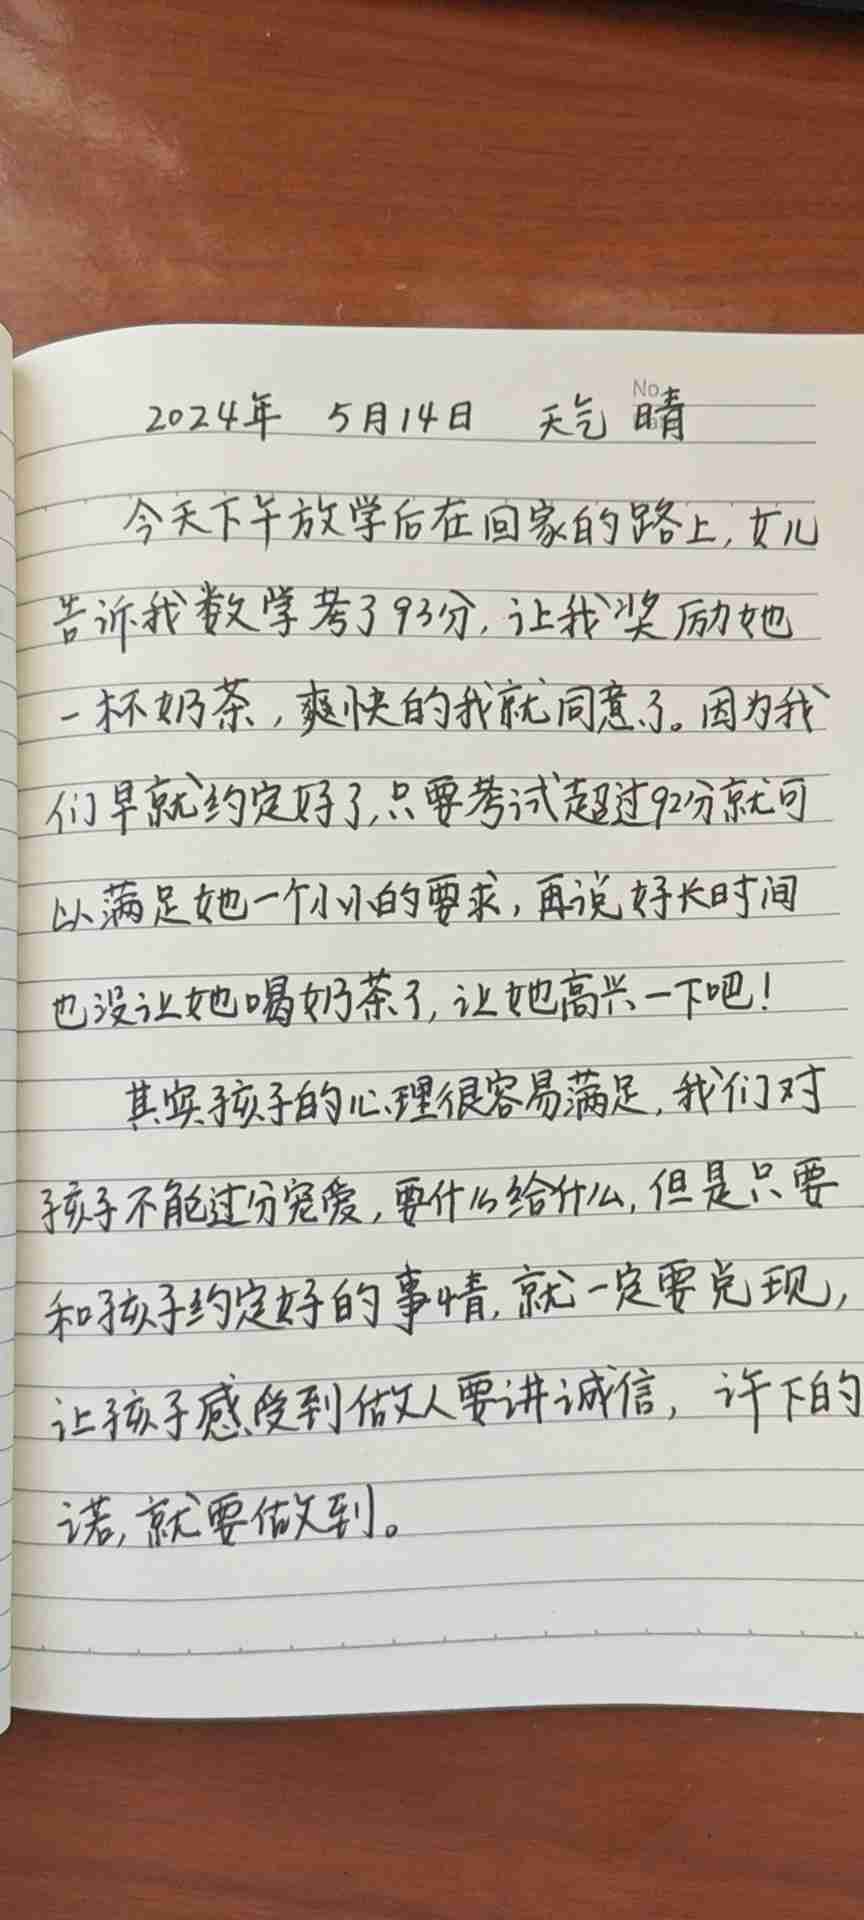 No.
2024年 5月14日 天气 晴
今天下午放学后在回家的路上,女儿
告诉我数学考了93分,让我奖励她
一杯奶茶,爽快的我就同意了。因为我
们早就约定好了,只要考试超过92分就可
以满足她一个小小的要求,再说好长时间
也没让她喝奶茶了,让她高兴一下吧!
其实孩子的心理很容易满足,我们对
孩子不能过分宠爱,要什么给什么,但是只要
和孩子约定好的事情,就一定要兑现,
让孩子感受到做人要讲诚信,许下的
诺,就要做到。